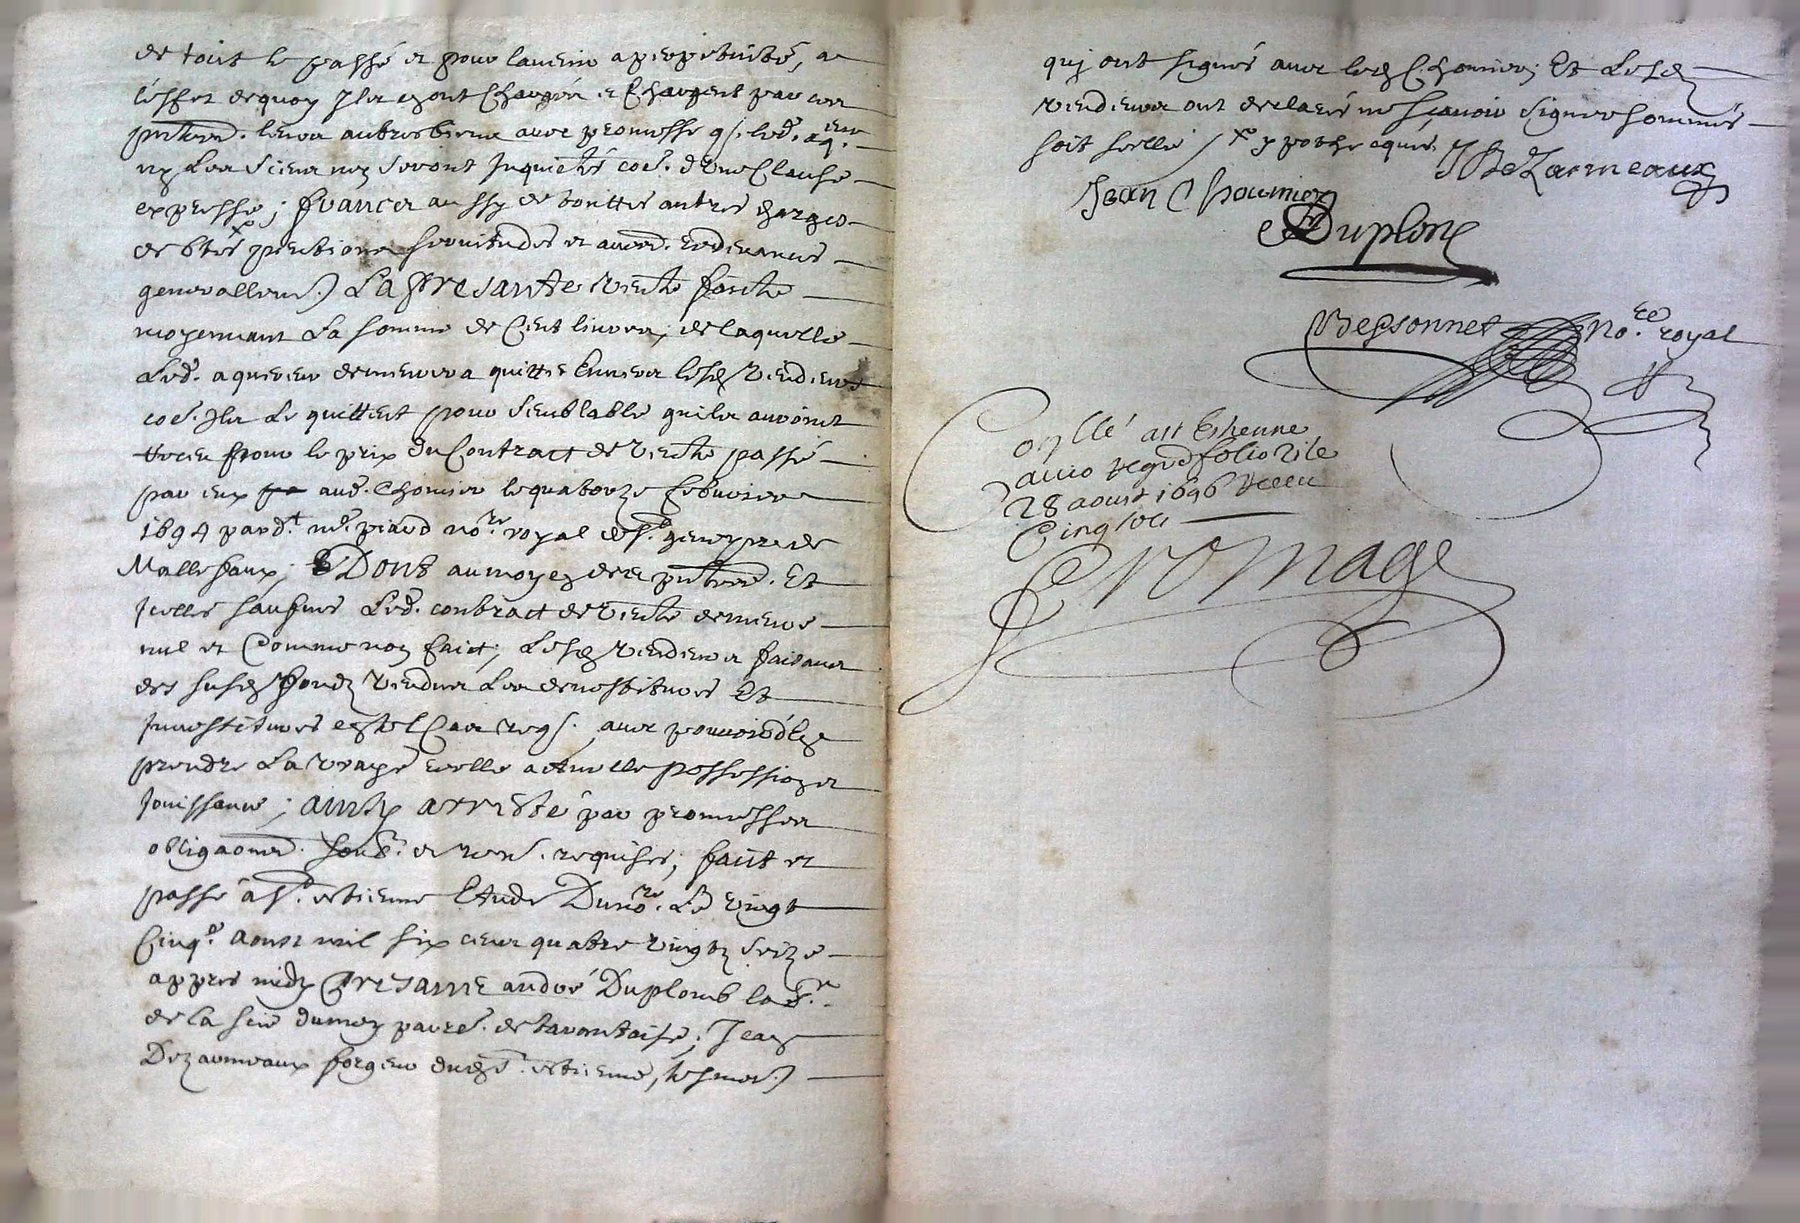 de tout le passé et pour l'avenir a perpetuitté, a
l'effet dequoy Ils en ont Chargé et Chargent par ces
pntes. leurs autres biens avec promesse q. led. aqr.
ny Les Siens ny seront Inquiettés co͠e. d'une Clause
expresse; francz aussy de touttes autres charges
de btes pentions servitudes et arrer. redevances
generallem.t) La Presante vente faicte
moyennant La somme de Cent livres, de laquelle
Led. aquereur demeurera quitte Envers lesd. Vendeurs
co͠e. Ils Le quittent pour semblable qu'ils avoint
receu pour le prix du Contract de vente passé
par eux aud. Chomier le quatorze febvrier
1694 pard.t me. piard no.re royal de St. genest de
Mallesaux; Dont au moyen des pntes. Et
Icelles sausines Led. contract de vente demeure
nul et Comme non faict; Lesd. Vendeurs faisant
des susd. fondz vendus Les devestitures Et
Investitures en tel Cas req. avec pouvoir d'en
prendre La vraye reelle actuelle possession et
Jouissance; ainsy arresté par promesses
obligaons. soub. et ren. requises; faict et
passé à St. estienne Etude Du no.re. Le vingt
Cinq.e aoust mil six cens quatre vingtz seize
appres midy Presant andré Duplomb lab.r
de la parre. de tarantaise; Jean
Dezarmeaux forgeur dud. St. estienne, tesmoi.)
quj ont signés avec led. Chomier; Et Lesd.
vendeurs ont declarés ne sçavoir signer sommés
soit scellé / x ypothecques
J Dezarmeaux
Jean Chaumier
Duplonc
Bessonnet No.re royal
Con.llé a St Ethienne
28 aoust 1696 Receu
Cinq sols
Cromage